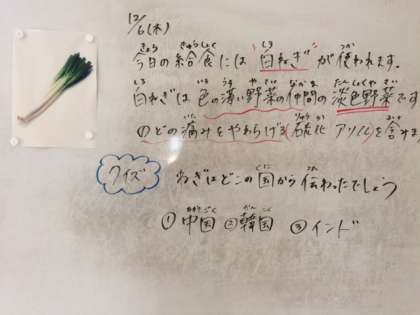 12/6(木)
今日の給食には"白ねぎ"が使われます。
白ねぎは色の薄い野菜の仲間の淡色野菜です
のどの痛みをやわらげる硫化アリルを含みま
クイズ
ねぎはどこの国から伝わったでしょう
①中国 ②韓国 ③インド